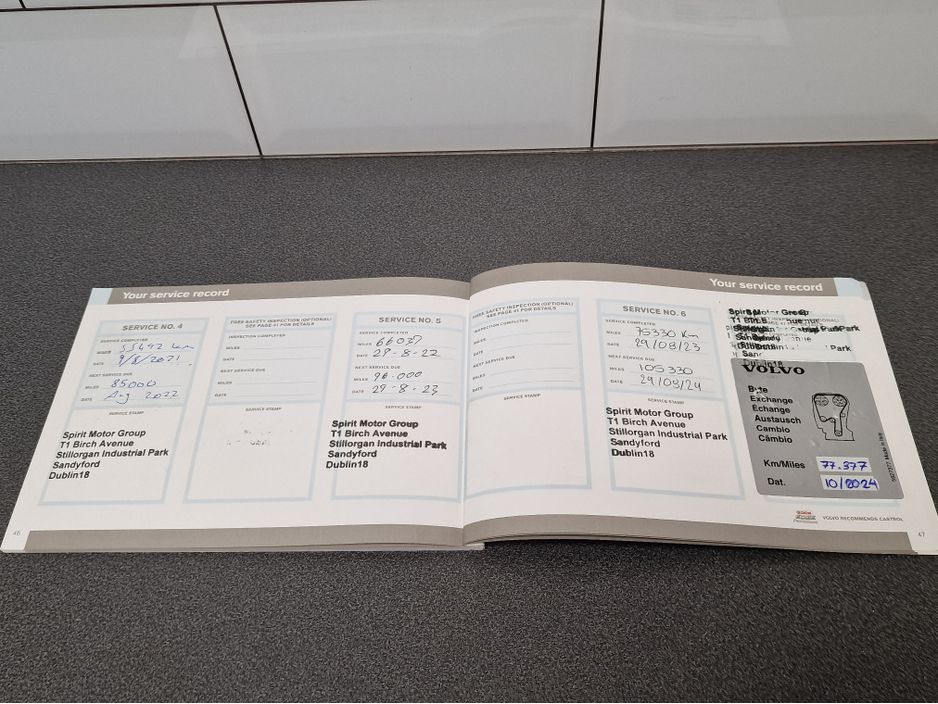 Your service record
SERVICE NO. 4
SERVICE COMPLETED
MILES 55692 km
DATE 9/8/2021
NEXT SERVICE DUE
MILES 85000
DATE Aug 2022
SERVICE STAMP
Spirit Motor Group
T1 Birch Avenue
Stillorgan Industrial Park
Sandyford
Dublin18
46
FREE SAFETY INSPECTION (OPTIONAL)
SEE PAGE 41 FOR DETAILS
INSPECTION COMPLETED
MILES
DATE
NEXT SERVICE DUE
MILES
DATE
SERVICE STAMP
SERVICE NO. 5
SERVICE COMPLETED
MILES 66027
DATE 29-8-22
NEXT SERVICE DUE
MILES 96.000
DATE 29-8-23
SERVICE STAMP
Spirit Motor Group
T1 Birch Avenue
Stillorgan Industrial Park
Sandyford
Dublin18
Your service record
FREE SAFETY INSPECTION (OPTIONAL)
SEE PAGE 41 FOR DETAILS
INSPECTION COMPLETED
MILES
DATE
NEXT SERVICE DUE
MILES
DATE
SERVICE STAMP
SERVICE NO. 6
SERVICE COMPLETED
MILES 75330 Km
DATE 29/08/23
NEXT SERVICE DUE
MILES 105330
DATE 29/08/24
SERVICE STAMP
Spirit Motor Group
T1 Birch Avenue
Stillorgan Industrial Park
Sandyford
Dublin18
Spirit Motor Group
VOLVO
Byte
Exchange
Échange
Austausch
Cambio
Câmbio
Km/Miles 77.377
Dat. 10/2024
VOLVO RECOMMENDS CASTROL
47